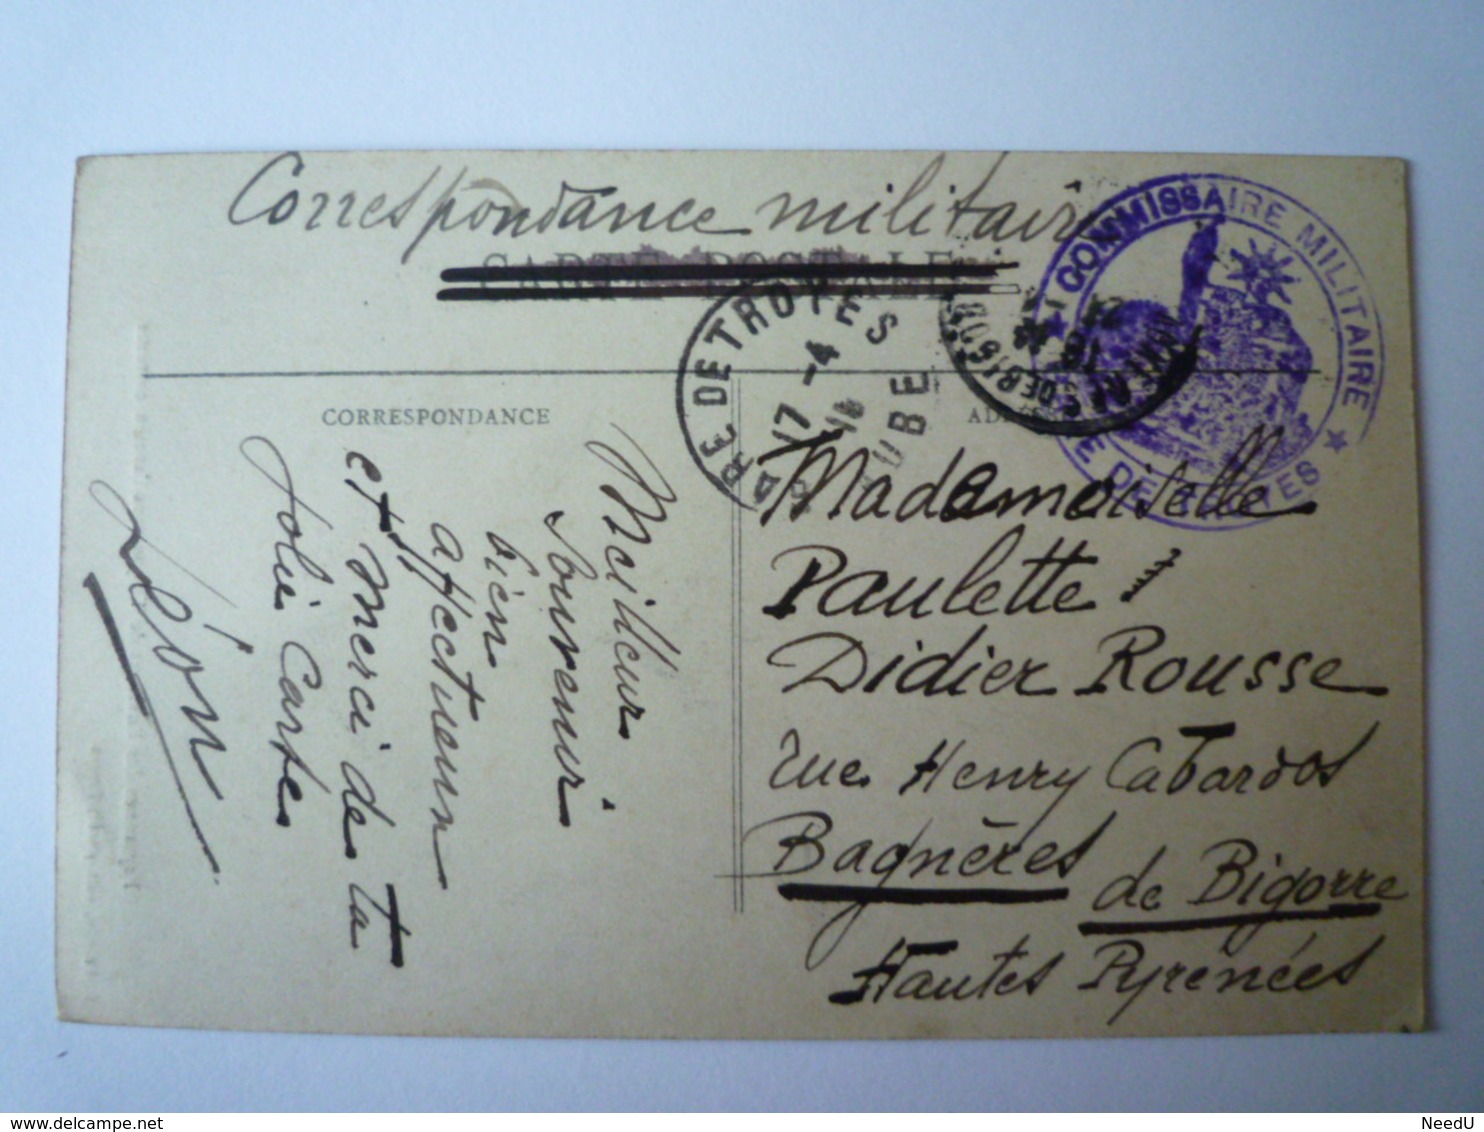 Correspondance militaire
CARTE POSTALE
COMMISSAIRE MILITAIRE
GARE DE TROYES
17 -4
18
AUBE
18 -4
CORRESPONDANCE
Meilleur
Souvenir
bien
affectueux
et merci de ta
Jolie Carte
Léon
Mademoiselle
Paulette
Didier Rousse
rue Henry Cabardos
Bagnères de Bigorre
Hautes Pyrénées
NeedU